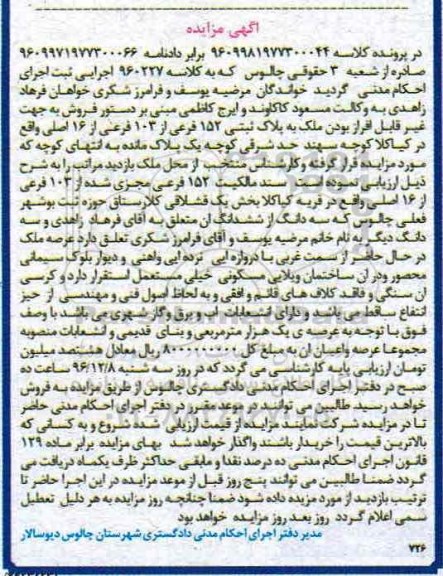 آگهی مزایده
در پرونده کلاسه ۹۶۰۹۹۸۱۹۷۷۳۰۰۰۴۴ برابر دادنامه ۹۶۰۹۹۷۱۹۷۷۳۰۰۰۶۶
صادره از شعبه ۳ حقوقی چالوس که به کلاسه ۹۶۰۲۲۷ اجرایی ثبت اجرای
احکام مدنی گردید خواندگان مرضیه یوسف و فرامرز شکری خواهان فرهاد
زاهدی به وکالت مسعود کاکاوند و ایرج کاظمی مبنی بر دستور فروش به جهت
غیر قابل افراز بودن ملک به پلاک ثبتی ۱۵۲ فرعی از ۱۰۳ فرعی از ۱۶ اصلی واقع
در کیاکلا کوچه سهند حد شرقی کوچه یک پلاک مانده به انتهای کوچه که
مورد مزایده قرار گرفته و کارشناس منتخب از محل ملک بازدید مراتب را به شرح
ذیل ارزیابی نموده است سند مالکیت ۱۵۲ فرعی مجزی شده از ۱۰۳ فرعی
از ۱۶ اصلی واقع در قریه کیاکلا بخش یک قشلاقی کلارستاق حوزه ثبت نوشهر
فعلی چالوس که سه دانگ از ششدانگ آن متعلق به آقای فرهاد زاهدی و سه
دانگ دیگر به نام خانم مرضیه یوسف و آقای فرامرز شکری تعلق دارد عرصه ملک
در حال حاضر از سمت غربی با دروازه ایی نرده ایی واهنی و دیوار بلوک سیمانی
محصور ودر آن ساختمان ویلایی مسکونی خیلی مستعمل استقرار دارد و کرسی
آن سنگی و فاقد کلاف های قائم و افقی و به لحاظ اصول فنی و مهندسی از حیز
انتفاع ساقط می باشد و دارای انشعابات آب و برق و گاز شهری می باشد با وصف
فوق با توجه به عرصه ی یک هزار مترمربعی و بنای قدیمی و انشعابات منصوبه
مجموعا عرصه واعیان آن به مبلغ کل ۸۰۰۰۰۰۰۰۰۰ ریال معادل هشتصد میلیون
تومان ارزیابی پایه کارشناسی می گردد که در روز سه شنبه ۹۶/۱۲/۸ ساعت ده
صبح در دفتر اجرای احکام مدنی دادگستری چالوس از طریق مزایده به فروش
خواهد رسید. طالبین می توانند در موعد مقرر در دفتر اجرای احکام مدنی حاضر
تا در مزایده شرکت نمایند مزایده از قیمت ارزیابی شده شروع و به کسانی که
بالاترین قیمت را خریدار باشند واگذار خواهد شد بهای مزایده برابر ماده ۱۲۹
قانون اجرای احکام مدنی ده درصد نقدا و مابقی حداکثر ظرف یکماه دریافت می
گردد ضمنا طالبین می توانند پنج روز قبل از موعد مزایده در این اجرا حاضر تا
ترتیب بازدید از مورد مزیده داده شود ضمنا چنانچه روز مزایده به هر دلیل تعطیل
رسمی اعلام گردد روز بعد روز مزایده خواهد بود
مدیر دفتر اجرای احکام مدنی دادگستری شهرستان چالوس دیوسالار
۷۲۶